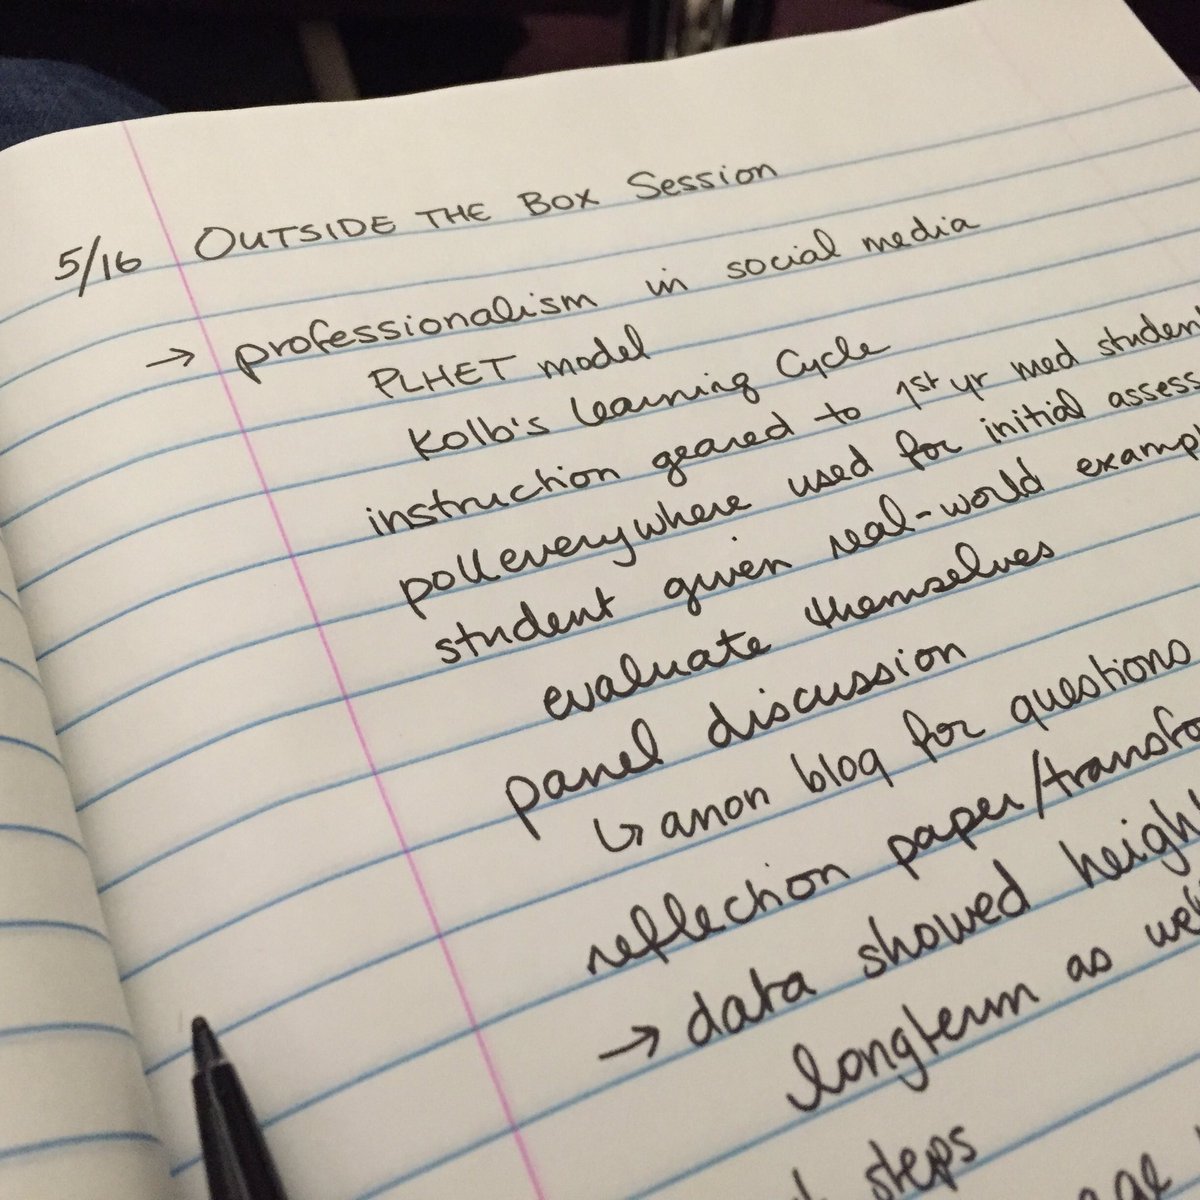 5/16 OUTSIDE THE BOX Session
→ professionalism in social media
PLHET model
Kolb's Learning Cycle
instruction geared to 1st yr med student
polleverywhere used for initial assess
student given real-world exampl
evaluate themselves
panel discussion
↳ anon blog for questions
reflection paper/transfo
→ data showed heigh
longterm as wel
steps